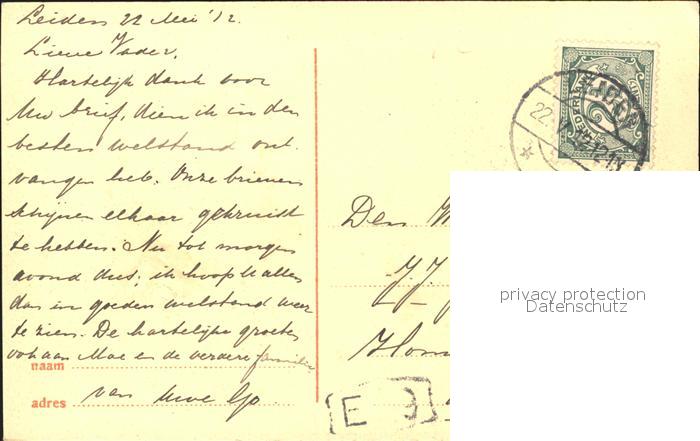 Leiden 22 Mei '12.
Lieve Vader,
Hartelijk dank voor
Uw brief, dien ik in den
besten welstand ont-
vangen heb. Onze brieven
schijnen elkaar gekruist
te hebben. Nu tot morgen
avond dus, ik hoop U allen
dan in goeden welstand weer
te zien. De hartelijke groeten
ook aan Moe en de verdere familie
naam
van Uwe
adres
22
12
Den
J.J.
E 3
privacy protection
Datenschutz